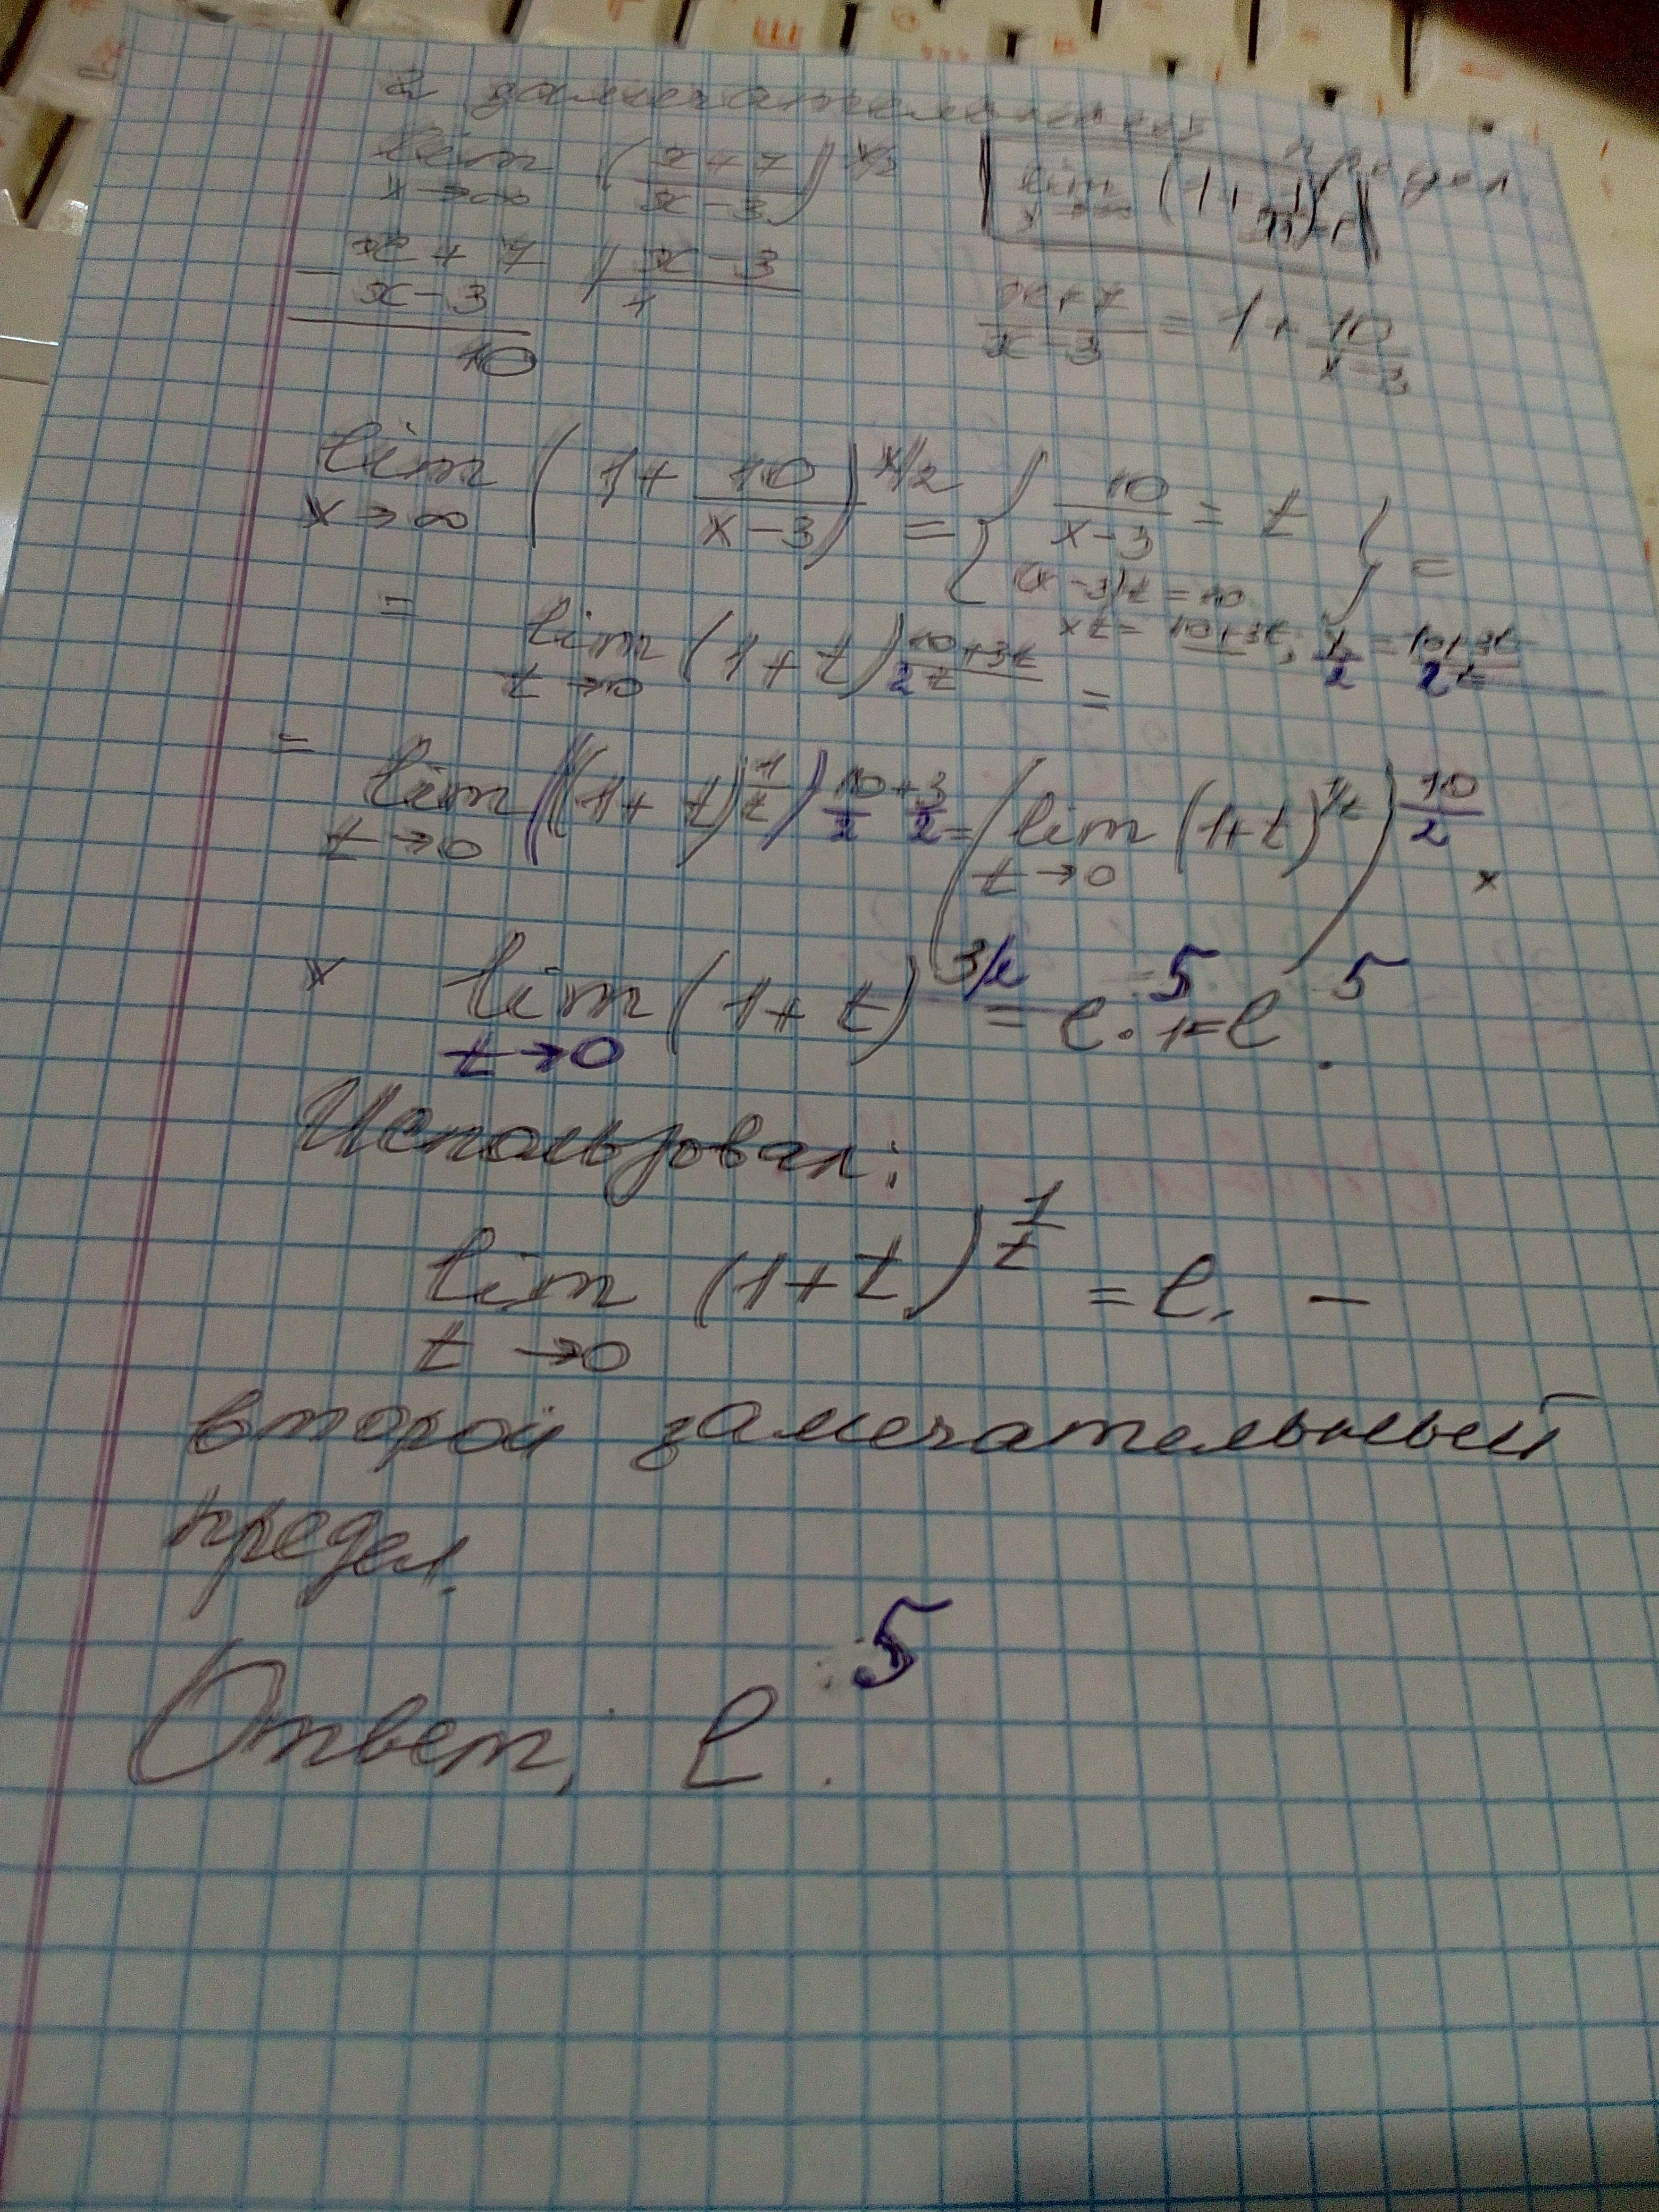 2 замечательный предел
lim x→∞ (x+7 / x-3)^x/2
lim x→∞ (1+1/n)^n=e
- x+7 | x-3
x-3 1
10
x+7 / x-3 = 1+ 10 / x-3
lim x→∞ (1+ 10 / x-3)^x/2 = { 10 / x-3 = t
(x-3)t=10
xt= 10+3t; x/2 = 10+3t / 2t } =
= lim t→0 (1+t)^10+3t / 2t =
= lim t→0 ((1+t)^1/t)^10/2 + 3/2 = (lim t→0 (1+t)^1/t)^10/2 ×
× lim t→0 (1+t)^3/2 = e^5 · 1=e^5.
Использовал:
lim t→0 (1+t)^1/t = e. –
второй замечательный
предел.
Ответ: e^5.